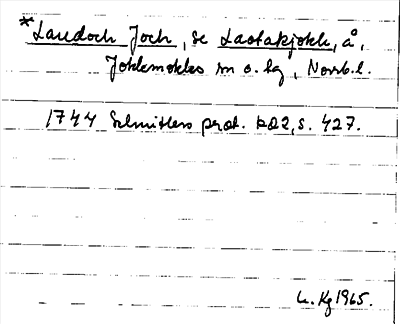 *Laudoch Joch, se Laotakjokk, å,
Jokkmokks sn o. hg, Norrb. l.
1744 Schnitlers prot. bd 2, s. 427.
Kg 1965.